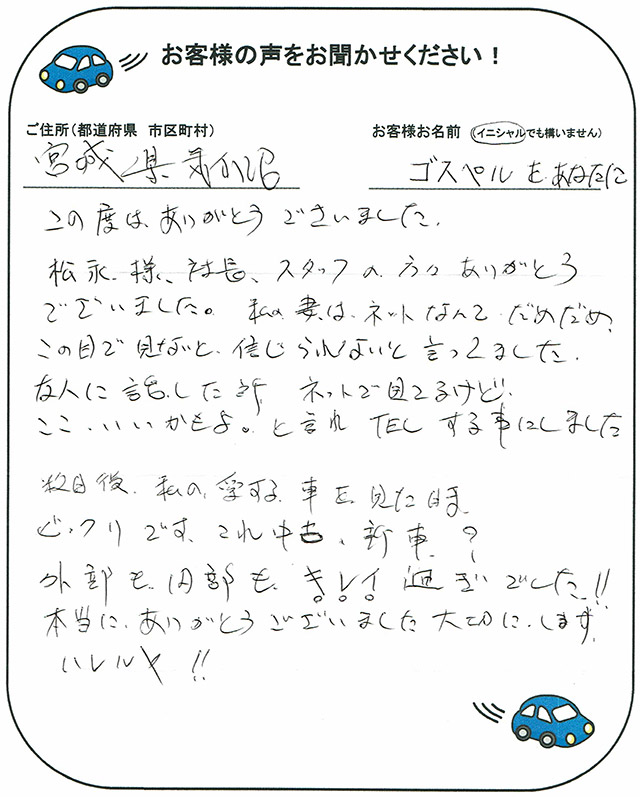 お客様の声をお聞かせください！
ご住所（都道府県　市区町村）
お客様お名前（イニシャルでも構いません）
宮城県気仙沼
ゴスペルをあなたに
この度はありがとうございました。
松永様、社長、スタッフの方々ありがとう
でございました。私の妻は、ネットなんてだめだめ、
この目で見ないと、信じられないと言ってました。
友人に話した所 ネットで見てるけど、
ここ、いいかもよ。と言れ TELする事にしました
数日後、私の愛する車を見た時
ビックリです、これ中古、新車、？
外部も内部もキレイ過ぎでした!!
本当に、ありがとうございました大切にします。
ハレルヤ!!